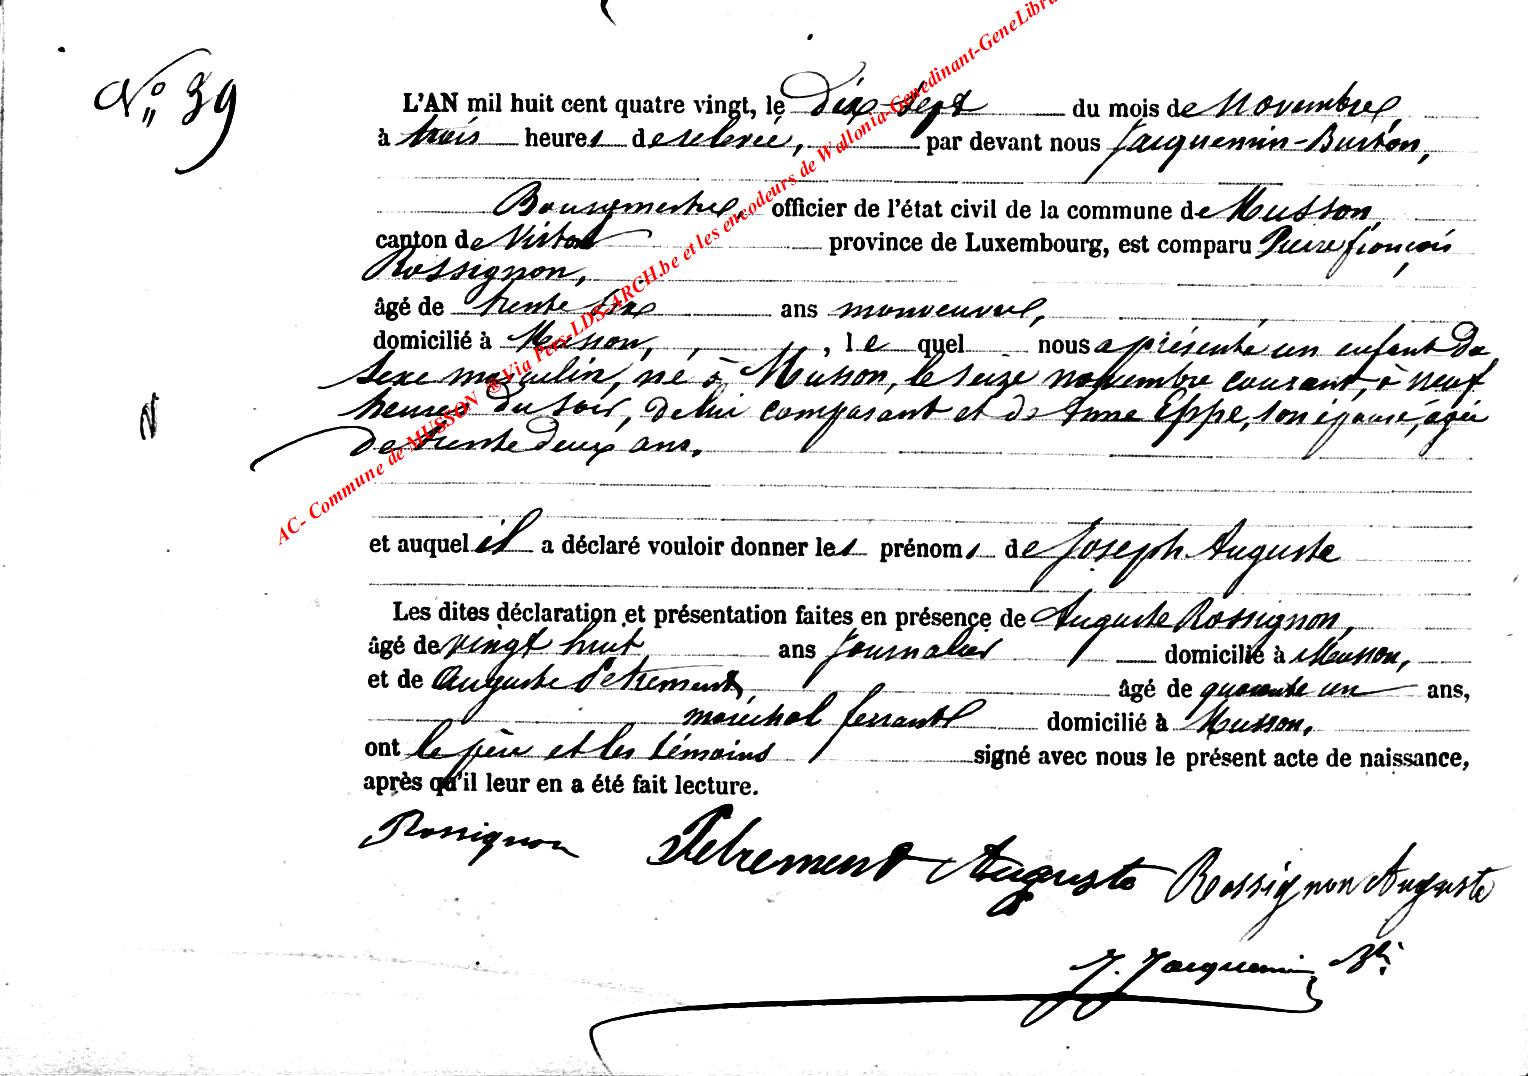 N° 39
L'AN mil huit cent quatre vingt, le dix-sept du mois de Novembre,
à trois heures de relevée, par devant nous Jacquemin-Burton,
Bourgmestre, officier de l'état civil de la commune de Musson,
canton de Virton province de Luxembourg, est comparu Pierre françois
Rossignon,
âgé de trente six ans manœuvre,
domicilié à Musson, , le quel nous a présenté un enfant du
sexe masculin, né à Musson, le seize novembre courant, à neuf
heures du soir, de lui comparant et de Anne Eppe, son épouse, âgée
de trente deux ans.
et auquel il a déclaré vouloir donner les prénoms de Joseph Auguste
Les dites déclaration et présentation faites en présence de Auguste Rossignon,
âgé de vingt huit ans journalier domicilié à Musson,
et de Auguste Petrement, âgé de quarante un ans,
maréchal ferrant domicilié à Musson.
ont le père et les témoins signé avec nous le présent acte de naissance,
après qu'il leur en a été fait lecture.
Rossignon Petrement Auguste Rossignon Auguste
J. Jacquemin
AC- Commune de MUSSON ®Via Pers-LDS-ARCH.be et les encodeurs de Wallonia-Genedinant-GeneLibra